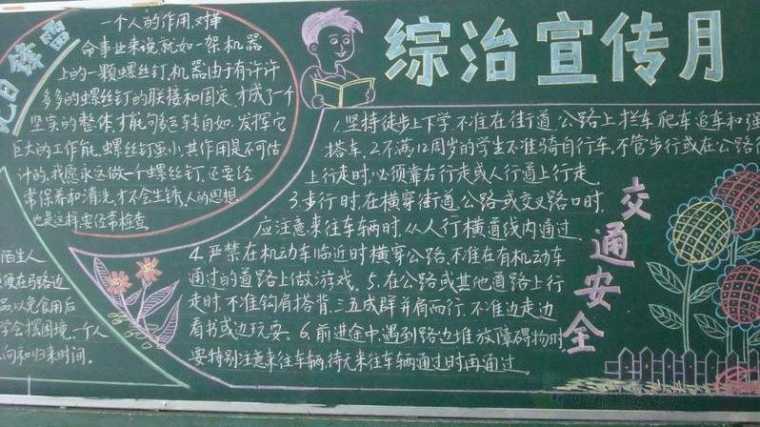 综治宣传月
一个人的作用,对革
命事业来说就如一架机器
上的一颗螺丝钉,机器由于有许许
多多的螺丝钉的联接和固定,才成了一个
坚实的整体,才能句多运转自如,发挥它
巨大的工作能,螺丝钉虽小,其作用是不可估
计的,我愿永远做一个螺丝钉,还要经
常保养和清洗,才不会生锈,人的思想
也是这样要经常检查
陌生人
在马路边
品,以免食用后
学会摆困境,一个人
向和归来时间。
1.坚持徒步上下学,不准在街道,公路上拦车,爬车,追车和强
搭车.2.不满12周岁的学生不准骑自行车,不管步行或在公路
上行走时,必须靠右行走或人行道上行走.
3.步行时,在横穿街道,公路或交叉路口时,
应注意来往车辆时,从人行横道线内通过.
4.严禁在机动车临近时横穿公路,不准在有机动车
通过的道路上做游戏。5.在公路或其他道路上行
走时,不准钩肩搭背,三五成群并肩而行,不准边走边
看书或边玩耍。6.前进途中,遇到路边堆放障碍物时,
要特别注意来往车辆,待无来往车辆通过时再通过.
交通安全